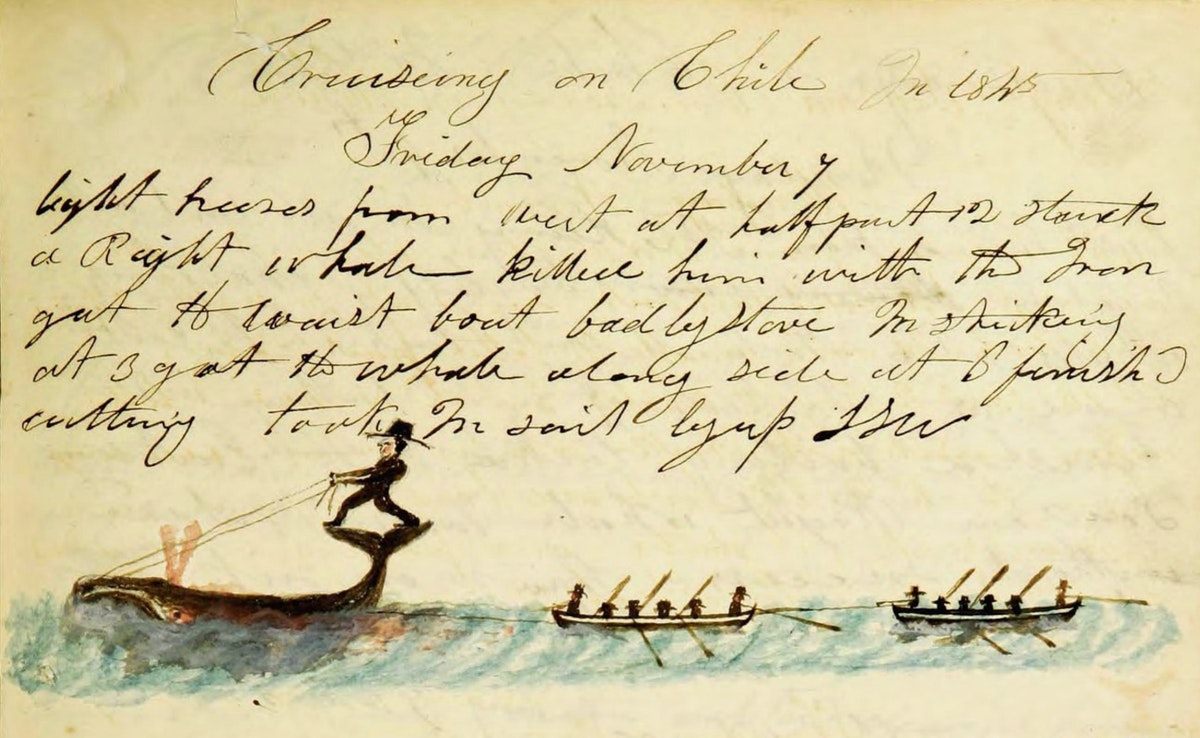 Cruiseing on Chile In 1845
Friday November 7
light breeses from west at half past 12 struck
a Right whale killed him with the Iron
got th waist boat badly stove In striking
at 3 got th whale along side at 6 finishd
cutting took In sail